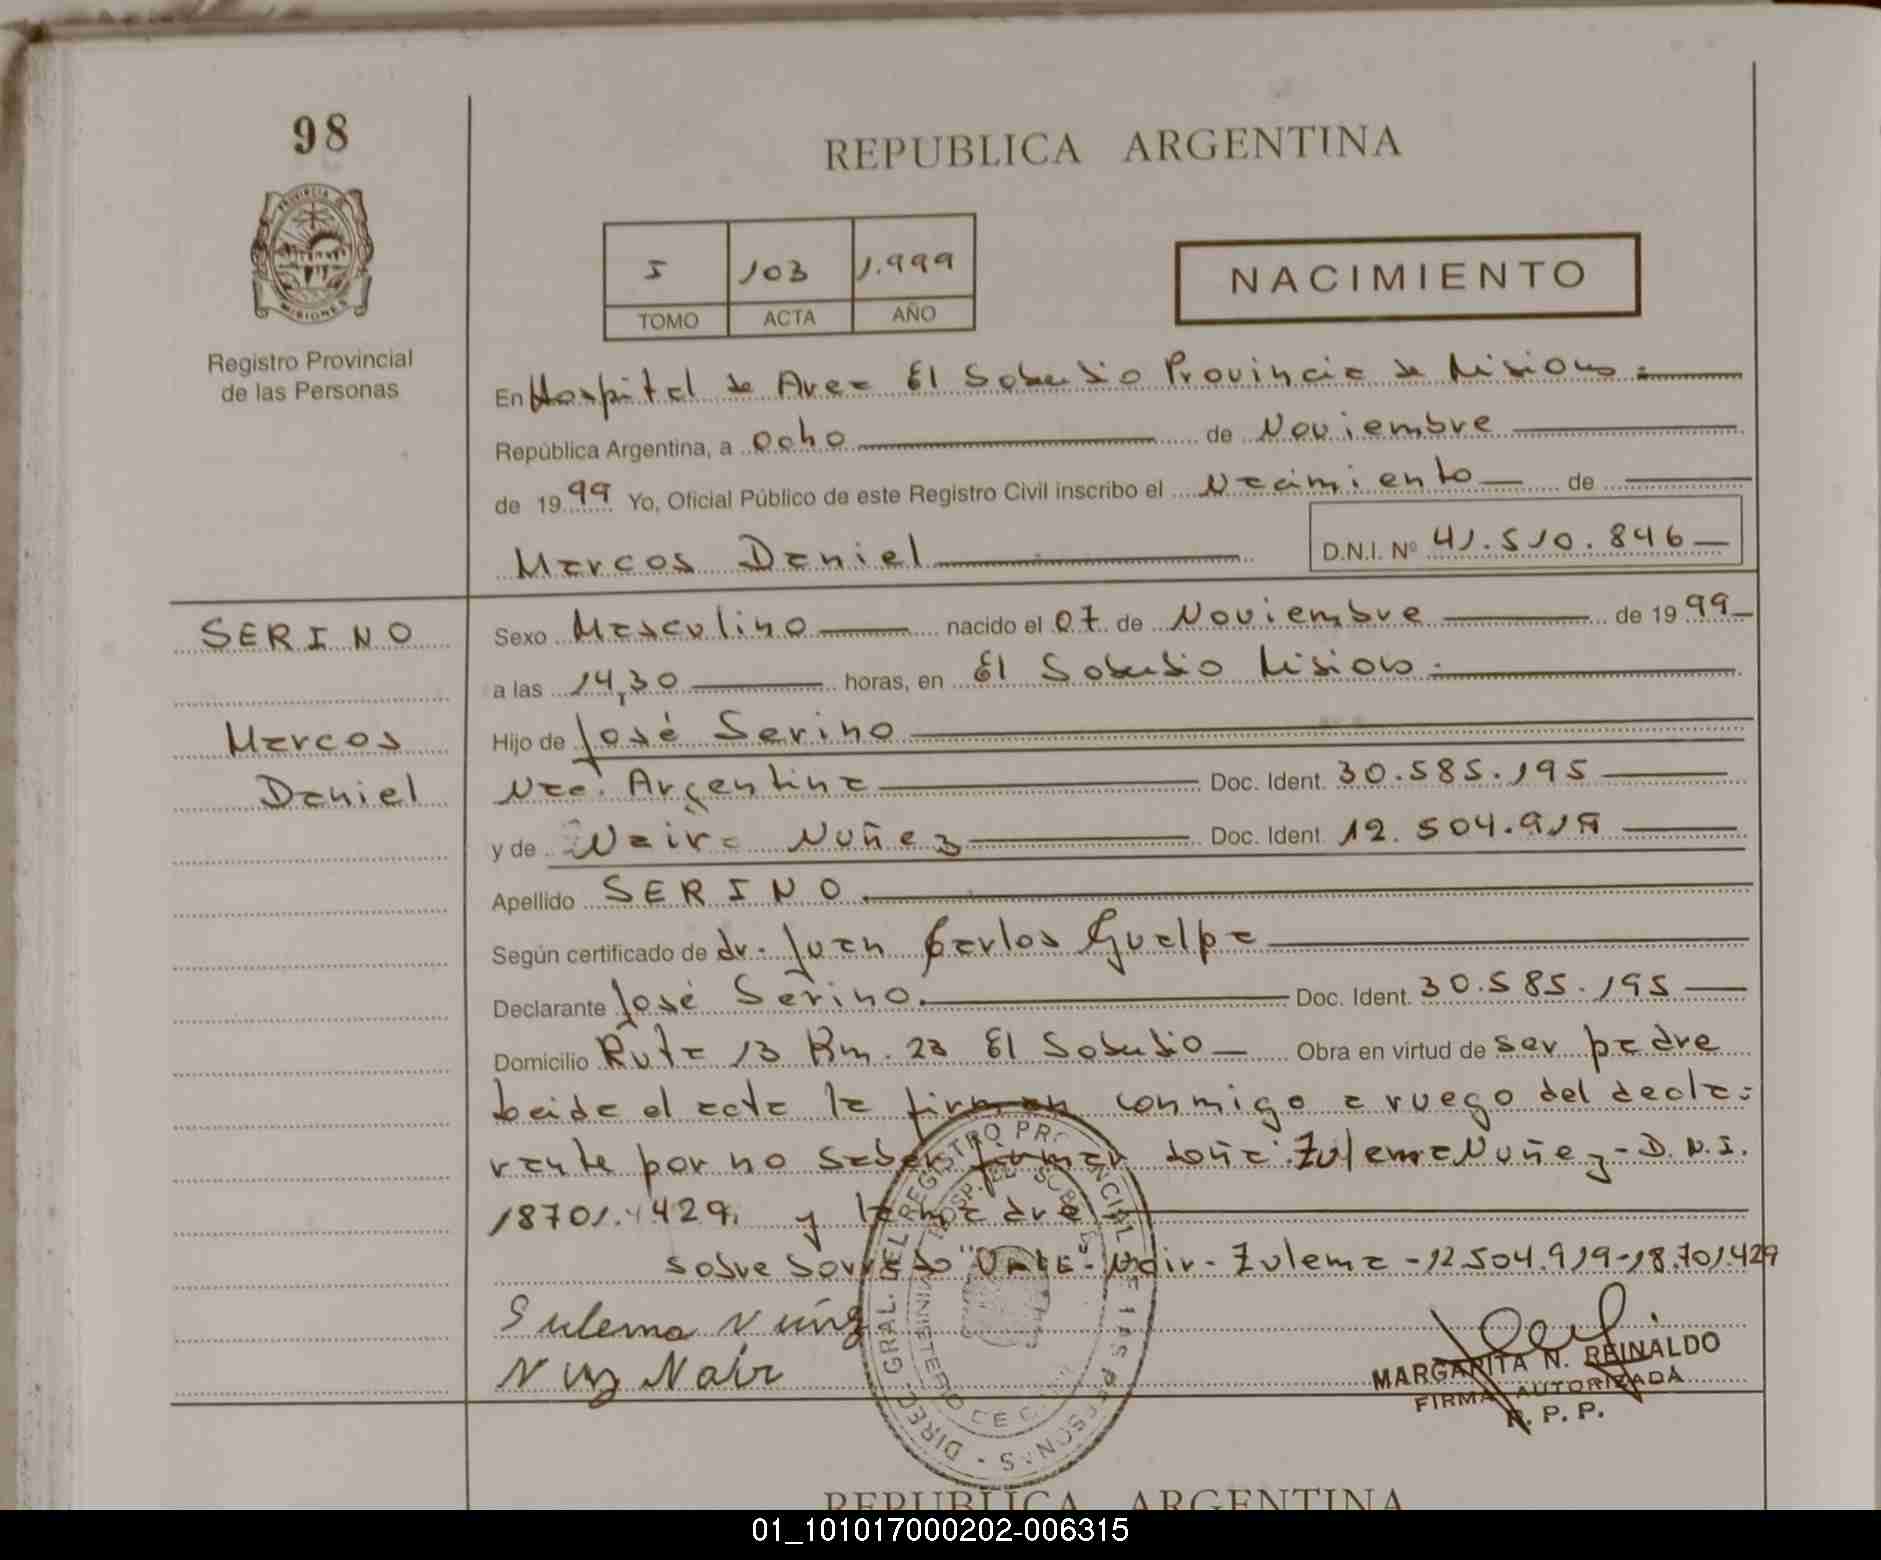 98
REPUBLICA ARGENTINA
PROVINCIA DE
MISIONES
Registro Provincial
de las Personas
I 103 1.999
TOMO ACTA AÑO
NACIMIENTO
En Hospital de Area El Soberbio Provincia de Misiones
República Argentina, a ocho de Noviembre
de 1999 Yo, Oficial Público de este Registro Civil inscribo el Nacimiento de
Marcos Daniel D.N.I. Nº 41.510.846
SERINO
Marcos
Daniel
Sexo Masculino nacido el 07 de Noviembre de 1999
a las 14,30 horas, en El Soberbio Misiones
Hijo de José Serino
Nac. Argentina Doc. Ident. 30.585.195
y de Nair Nuñez Doc. Ident. 12.504.919
Apellido SERINO
Según certificado de dr. Juan Carlos Guelpa
Declarante José Serino. Doc. Ident. 30.585.195
Domicilio Ruta 13 Km. 23 El Soberbio Obra en virtud de ser padre
Leida el acta la firman conmigo a ruego del decla=
rante por no saber firmar doña: Zulema Nuñez - D.N.I.
18701.429. y la madre
sobre borrado "VALE"- Nair - Zulema - 12.504.919-18.701.429
Sulema
Nair
MARGARITA N. REINALDO
FIRMA AUTORIZADA
R. P. P.
DIREC. GRAL. DEL REGISTRO PROVINCIAL DE LAS PERSONAS
REPUBLICA ARGENTINA
01_101017000202-006315